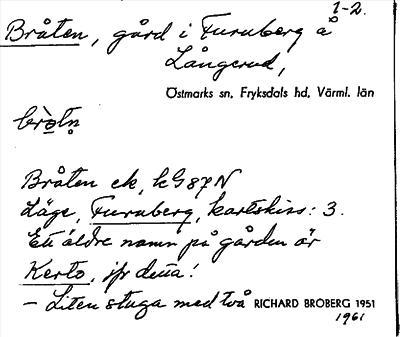 1-2.
Bråten, gård i Furuberg å
Långerud,
Östmarks sn, Fryksdals hd, Värml. län
brò̤tn̥
Bråten ek, kG87N
Läge, Furuberg, kartskiss: 3.
Ett äldre namn på gården är
Kerto, jfr detta!
- Liten stuga med två RICHARD BROBERG 1951
1961